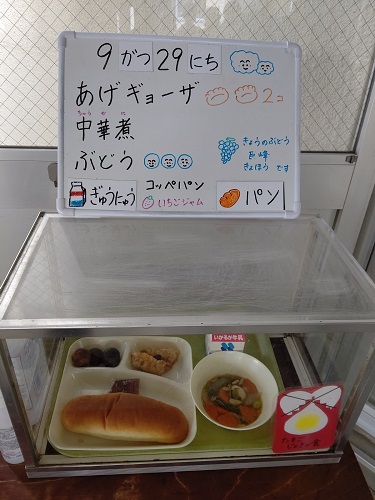 9がつ29にち
あげギョーザ 2コ
ちゅう か に
中華煮
ぶどう
きょうのぶどう
巨峰
きょほう です
ぎゅうにゅう
コッペパン
いちごジャム
パン
いかるが牛乳